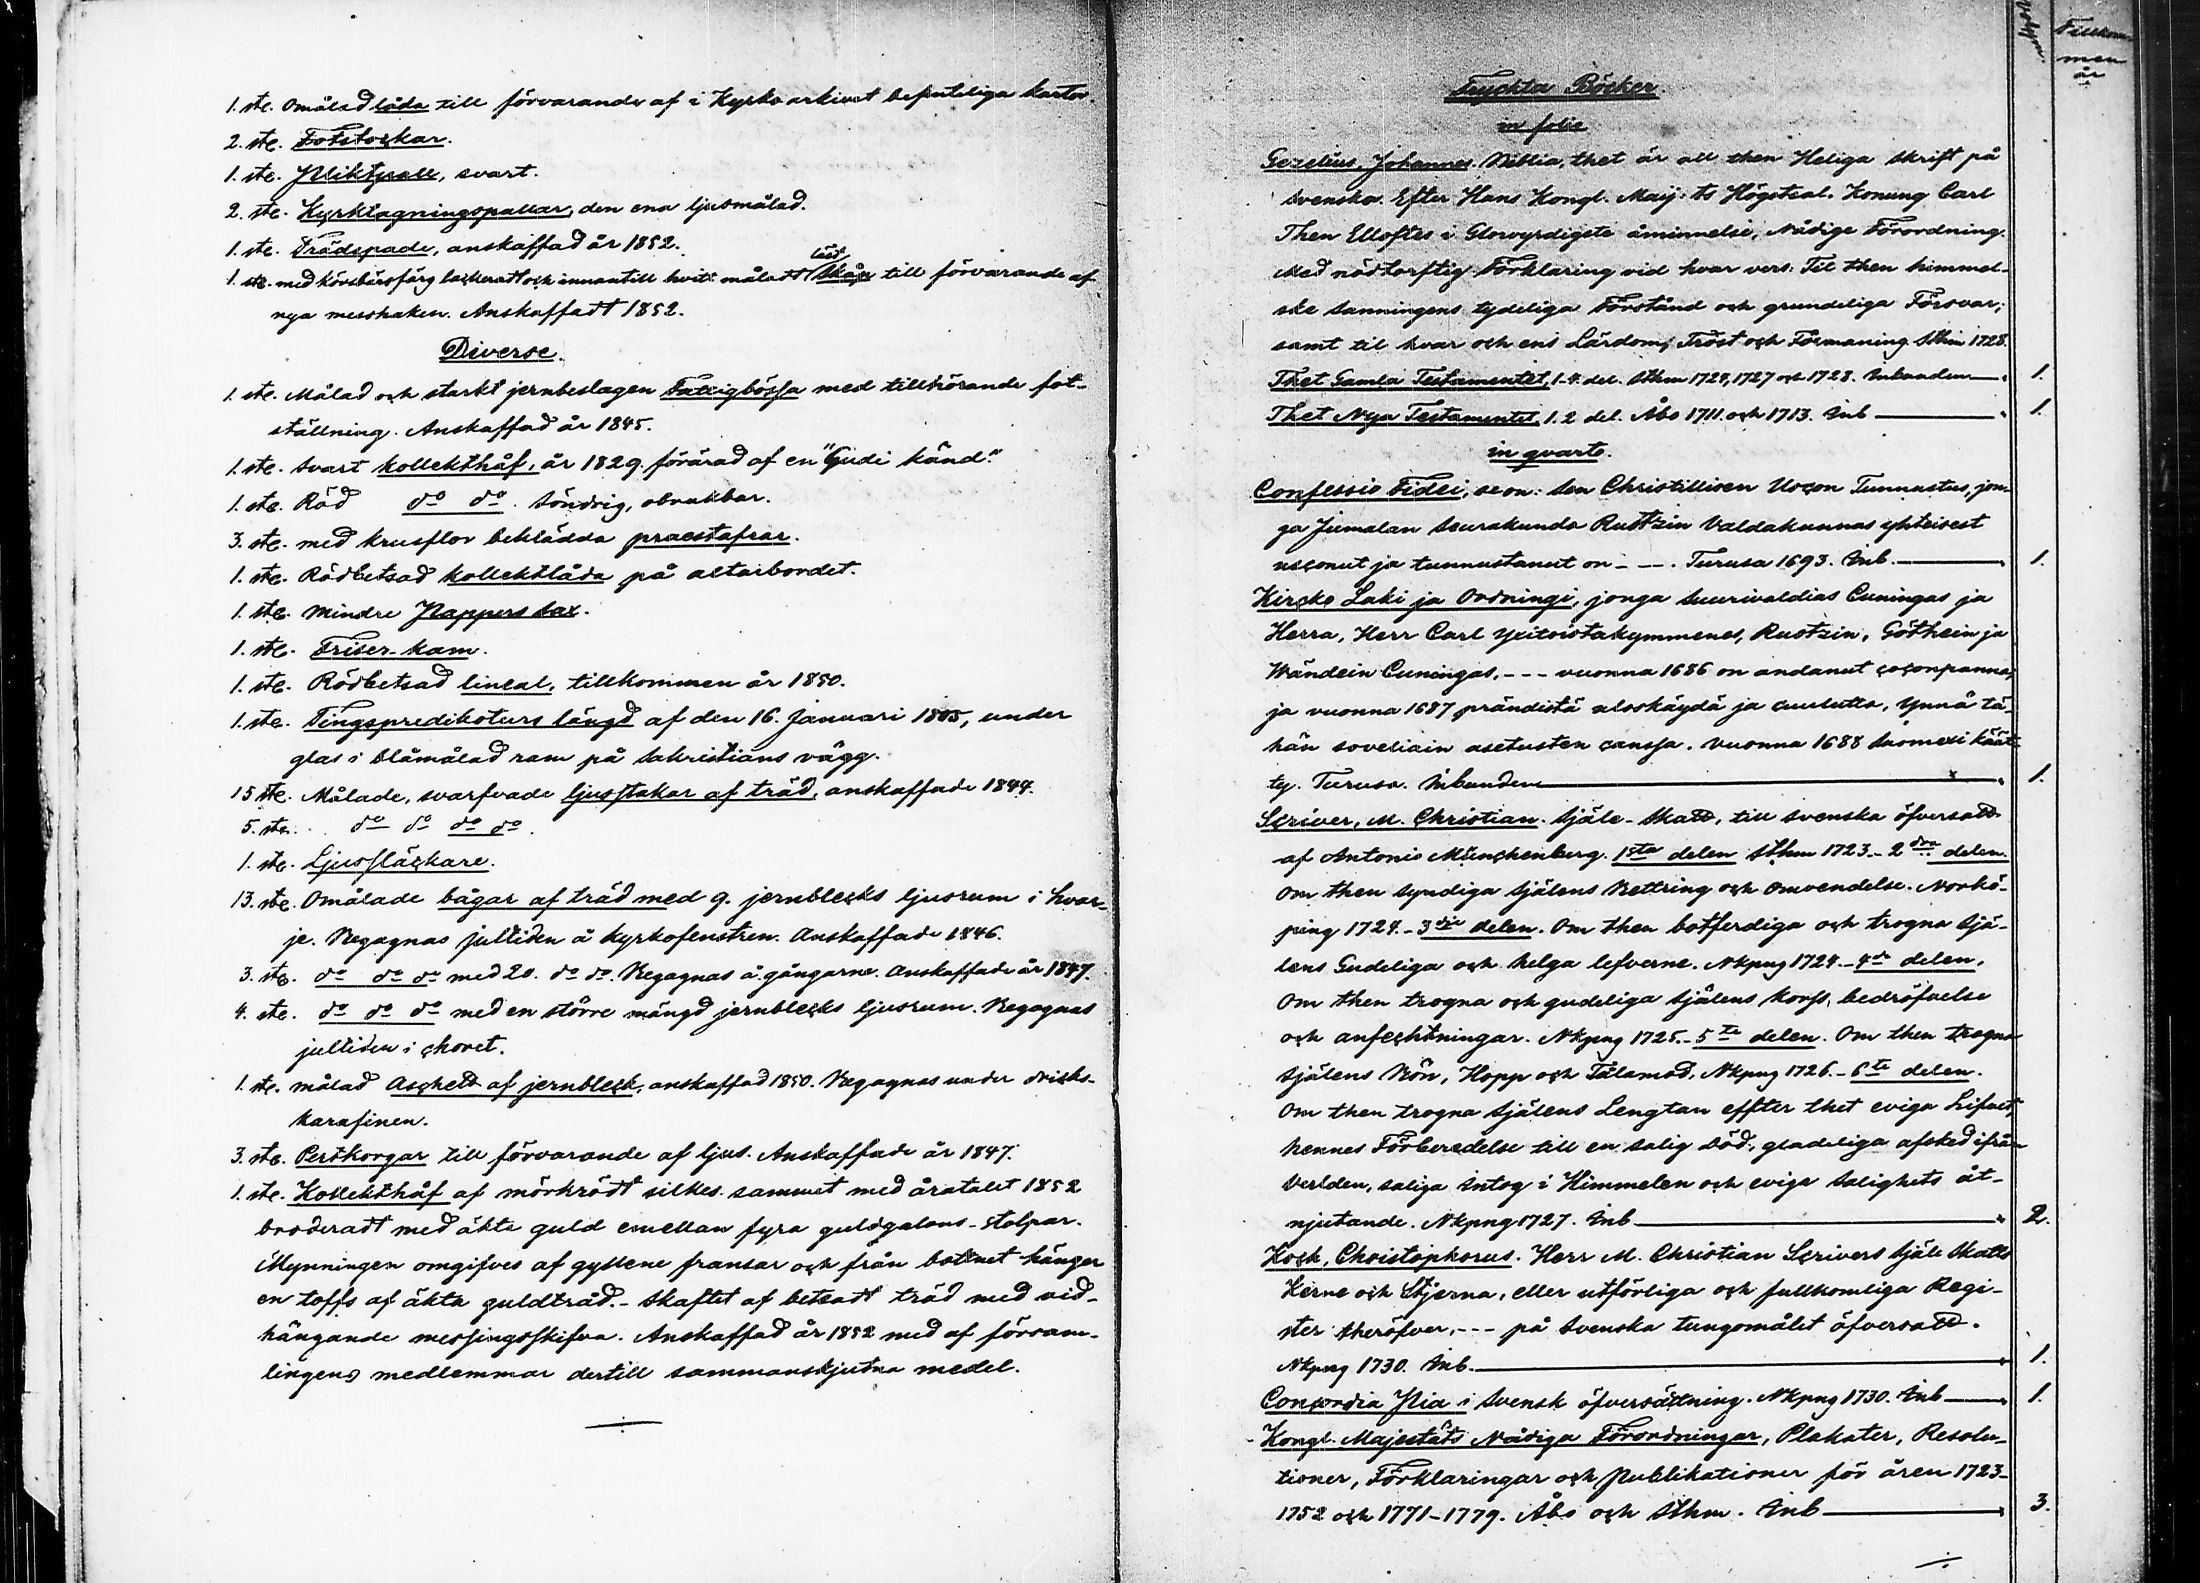 1. st. Omålad låda till förvarande af i Kyrko arkivet befintliga kartor.
2. st. Fotstockar.
1. st. Pliktpall, svart.
2. st. Kyrktagningspallar, den ena ljusmålad.
1. st. Trädspade, anskaffad år 1852.
1. st. med körsbärsfärg lackeradt och innantill hvitt måladt skåp till förvarande af
nya messhaken. Anskaffadt 1852.
Diverse.
1. st. Målad och starkt jernbeslagen Fattigbössa med tillhörande fot-
ställning. Anskaffad år 1845.
1. st. Svart kollekthåf, år 1829. förärad af en "Gudi känd."
1. st. Röd do do. Söndrig, obrukbar.
3. st. med krusflor beklädda praestafrar.
1. st. Rödbetsad kollektlåda på altarbordet.
1. st. mindre Papperssax.
1. st. Friser-kam.
1. st. Rödbetsad lineal, tillkommen år 1850.
1. st. Tingspredikoturs längd af den 16. Januari 1805, under
glas i blåmålad ram på Sakristians vägg.
15 st. Målade, svarfvade ljusstakar af träd, anskaffade 1844.
5. st. do do do do.
1. st. Ljussläckare.
13. st. Omålade bågar af träd med 9. jernblecks ljusrum i hvar-
je. Begagnas jultiden å kyrkofenstren. Anskaffade 1846.
3. st. do do do med 20. do do. Begagnas å gångarne. Anskaffade år 1847.
4. st. do do do med en större mängd jernblecks ljusrum. Begagnas
jultiden i choret.
1. st. målad Aschett af jernbleck, anskaffad 1850. Begagnas under dricks-
karafinen.
3. st. Pertkorgar till förvarande af ljus. Anskaffade år 1847.
1. st. Kollekthåf af mörkrödt silkes sammet med åratalet 1852
broderadt med äkta guld emellan fyra guldgalons-stolpar.
Mynningen omgifves af gyllene fransar och från bottnet hänger
en toffs af äkta guldtråd.- Skaftet af betsadt träd med vid-
hängande messingsskifva. Anskaffad år 1852 med af försam-
lingens medlemmar dertill sammanskjutna medel.
Tryckta Böcker
in folio
Tillkom-
men
år
Gezelius, Johannes. Biblia, thet är all then Heliga Skrift på
Svenska. Efter Hans Kongl. Maij:ts Högstsal. Konung Carl
Then Elloftes i Glorvyrdigste åminnelse, Nådige Förordning.
Med nödtorftig Förklaring vid hvar vers: Til then himmel-
ske Sanningens tydeliga Förstånd och grundeliga Försvar;
samt til hvar och ens Lärdom, Tröst och Förmaning. Sthm 1728.
Thet Gamla Testamentet, 1-4. del. Sthm 1724, 1727 och 1728. Inbunden 1.
Thet Nya Testamentet, 1. 2 del. Åbo 1711 och 1713. Inb 1.
in qvarto.
Confessio Fidei, se on: Sen Christillisen Uscon Tunnustus, jon-
ga Jumalan Seurakunda Ruotzin Valdakunnas yhteisest
usconut ja tunnustanut on - - -. Turusa 1693. Inb. 1.
Kircko Laki ja Ordningi, jonga Suurivaldias Cuningas ja
Herra, Herr Carl yxitoistakymmenes, Ruotzin, Göthein ja
Wändein Cuningas, - - - vuonna 1686 on andanut cocoonpanna,
ja vuonna 1687 prändistä uloskäydä ja cuulutta, Ynnä tä-
hän soveliain asetusten canssa. Vuonna 1688 Suomexi käät-
ty. Turusa. Inbunden 1.
Scriver, M. Christian. Själe-Skatt, till Svenska öfversatt
af Antonio Münchenberg. 1sta delen Sthm 1723.- 2dra delen.
Om then syndiga Själens Bettring och Omvendelse. Norkö-
ping 1724.- 3die delen. Om then botferdiga och trogna Sjä-
lens Gudeliga och helga lefverne. Nkpng 1724.- 4de delen.
Om then trogna och gudeliga Själens kors, bedröfvelse
och anfechtningar. Nkpng 1725.- 5te delen. Om then trogna
Själens Bön, Hopp och Tålamod, Nkpng 1726.- 6te delen.
Om then trogna Själens Lengtan effter thet eviga Lifvet,
hennes Förberedelse till en salig död, gladeliga afsked ifrån
Verlden, saliga intog i Himmelen och eviga Salighets åt-
njutande. Nkpng 1727. Inb 2.
Koch, Christophorus. Herr M. Christian Scrivers Själe Skatts
Kerne och Stjerna, eller utförliga och fullkomliga Regi-
ster theröfver, - - - på Svenska tungomålet öfversatt.
Nkpng 1730. Inb. 1.
Concordia Pia i Svensk öfversättning. Nkpng 1730. Inb 1.
Kongl. Majestäts Nådiga Förordningar, Plakater, Resolu-
tioner, Förklaringar och Publikationer för åren 1723-
1752 och 1771-1779. Åbo och Sthm. Inb 3.